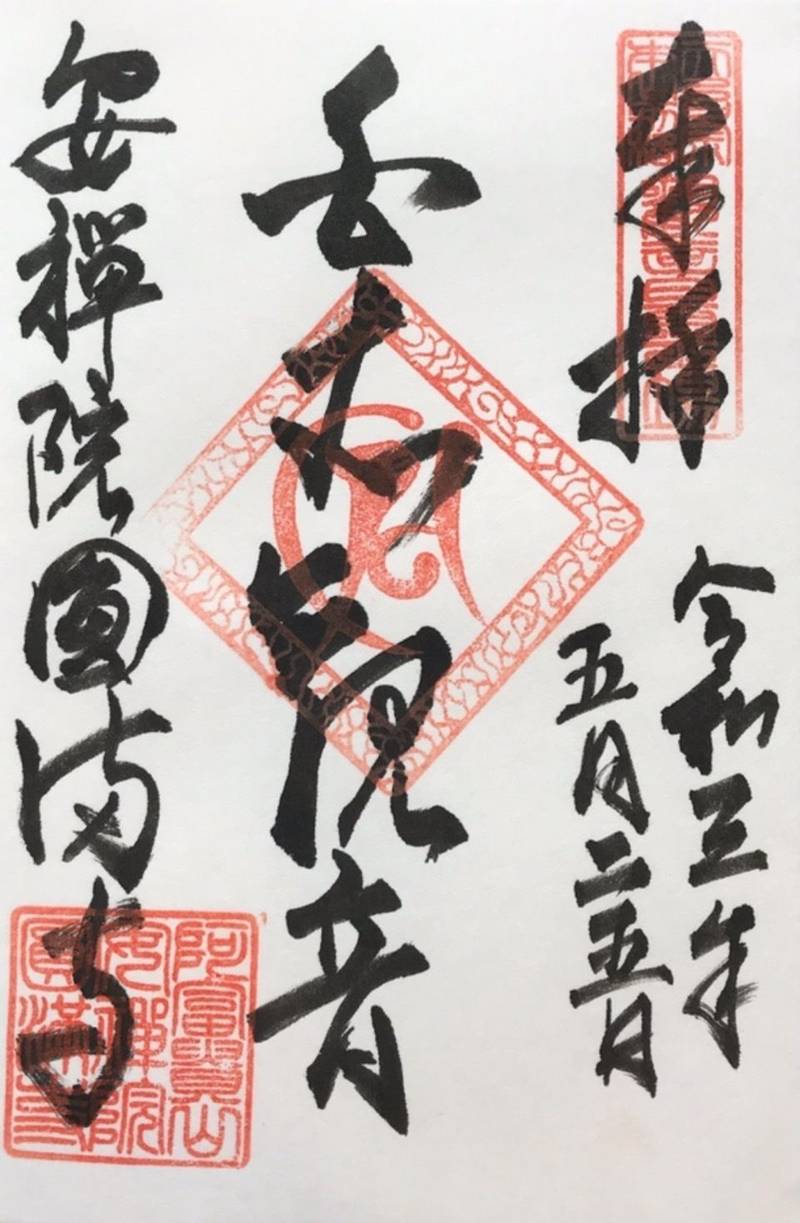 奉拝
令和三年
五月二五日
観音
安禅院圓満寺
阿富貴山
安禅院
圓満寺